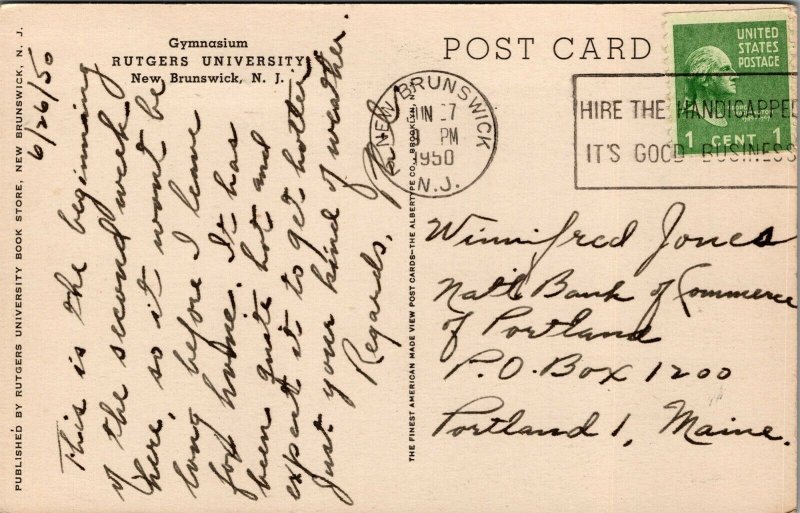 Gymnasium
RUTGERS UNIVERSITY
New Brunswick, N. J.
POST CARD
UNITED
STATES
POSTAGE
1 CENT 1
NEW BRUNSWICK
PM
1950
N.J.
HIRE THE HANDICAPPED
IT'S GOOD BUSINESS
6/26/50
This is the beginning
of the second week
here, so it wont be
long before I leave
for home. It has
been quite hot and
expect it to get hotter
Just your kind of weather.
Regards,
Winnifred Jones
Nat'l Bank of Commerce
of Portland
P.O. Box 1200
Portland 1, Maine.
PUBLISHED BY RUTGERS UNIVERSITY BOOK STORE, NEW BRUNSWICK, N. J.
THE FINEST AMERICAN MADE VIEW POST CARDS—THE ALBERTYPE CO., BROOKLYN, N.